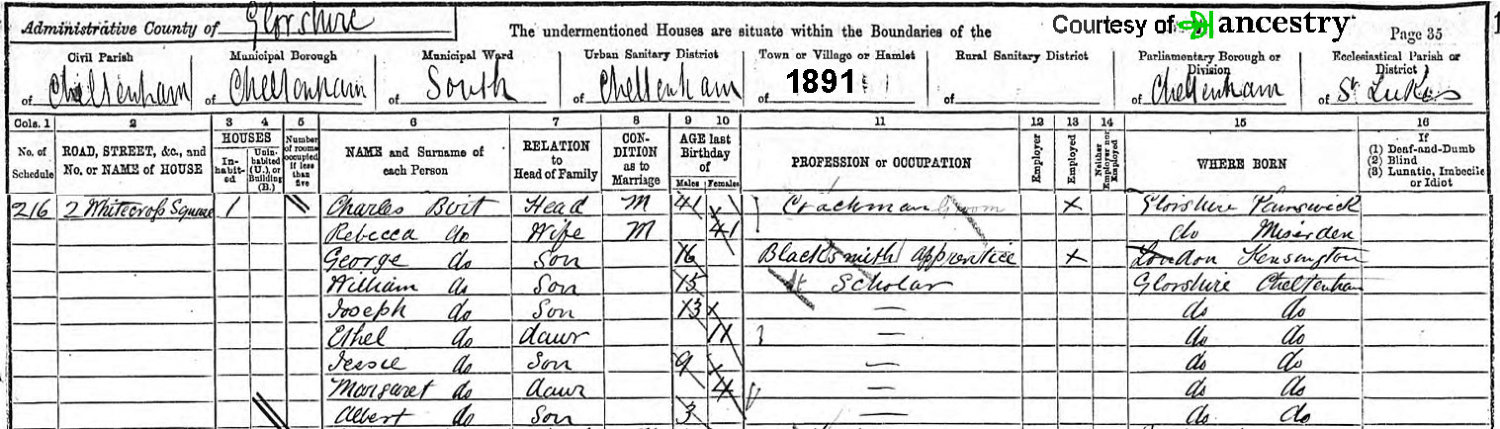 Administrative County of Glorshire The undermentioned Houses are situate within the Boundaries of the Courtesy of ancestry Page 35 1
Civil Parish Municipal Borough Municipal Ward Urban Sanitary District Town or Village or Hamlet Rural Sanitary District Parliamentary Borough or Division Ecclesiastical Parish or District
of Cheltenham of Cheltenham of South of Cheltenham of 1891 of of Cheltenham of St Lukes
Cols. 1 2 3 4 5 6 7 8 9 10 11 12 13 14 15 16
No. of Schedule ROAD, STREET, &c., and No. or NAME of HOUSE HOUSES In-habit-ed Unin-habited (U.), or Building (B.) Number of rooms occupied if less than five NAME and Surname of each Person RELATION to Head of Family CON-DITION as to Marriage AGE last Birthday of Males Females PROFESSION or OCCUPATION Employer Employed Neither Employer nor Employed WHERE BORN If (1) Deaf-and-Dumb (2) Blind (3) Lunatic, Imbecile or Idiot
216 2 Whitecross Square 1 Charles Birt Head M 41 Coachman Groom X Glorshire Painswick
Rebecca do Wife M 41 do Miserden
George do Son 16 Blacksmith apprentice X London Kensington
William do Son 15 Scholar Glorshire Cheltenham
Joseph do Son 13 — do do
Ethel do daur 11 — do do
Jessie do Son 9 — do do
Margaret do daur 4 — do do
Albert do Son 3 — do do